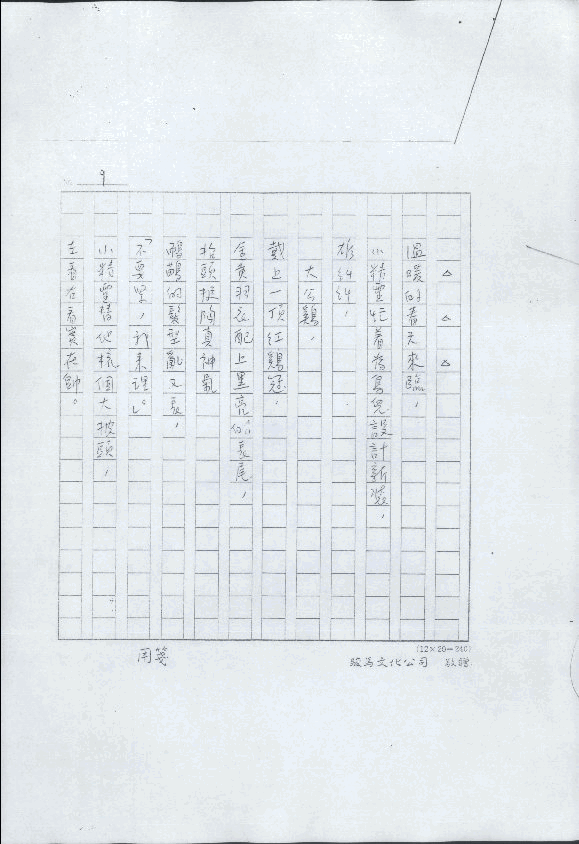 9
△ △ △
溫暖的春天來臨，
小精靈忙著為鳥兒設計新裝，
彬糾糾，
大公鷄，
戴上一頂紅鷄冠，
金黃羽衣配上黑亮的長尾，
抬頭挺胸真神氣
鸸鹋的髮型亂又長，
「不要緊，我來理。」
小精靈替他梳個大披頭，
左看右看實在帥。
(12×20=240)
駿馬文化公司 敬贈
用箋